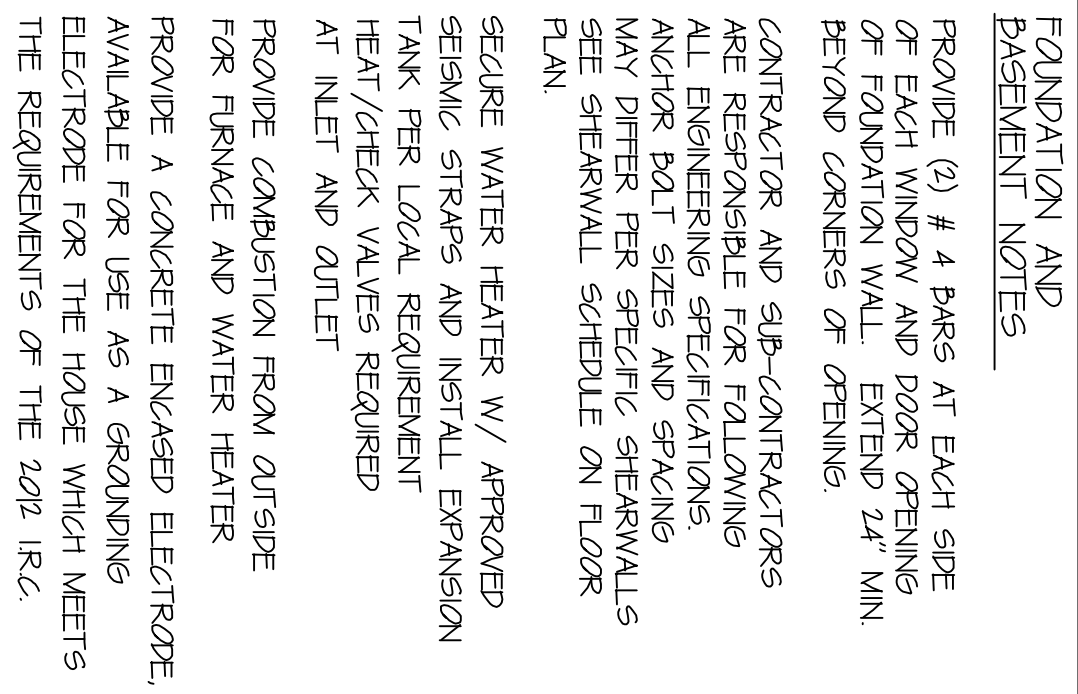 FOUNDATION AND
BASEMENT NOTES
PROVIDE (2) # 4 BARS AT EACH SIDE
OF EACH WINDOW AND DOOR OPENING
OF FOUNDATION WALL. EXTEND 24" MIN.
BEYOND CORNERS OF OPENING.
CONTRACTOR AND SUB-CONTRACTORS
ARE RESPONSIBLE FOR FOLLOWING
ALL ENGINEERING SPECIFICATIONS.
ANCHOR BOLT SIZES AND SPACING
MAY DIFFER PER SPECIFIC SHEARWALLS
SEE SHEARWALL SCHEDULE ON FLOOR
PLAN.
SECURE WATER HEATER W/ APPROVED
SEISMIC STRAPS AND INSTALL EXPANSION
TANK PER LOCAL REQUIREMENT
HEAT/CHECK VALVES REQUIRED
AT INLET AND OUTLET
PROVIDE COMBUSTION FROM OUTSIDE
FOR FURNACE AND WATER HEATER
PROVIDE A CONCRETE ENCASED ELECTRODE,
AVAILABLE FOR USE AS A GROUNDING
ELECTRODE FOR THE HOUSE WHICH MEETS
THE REQUIREMENTS OF THE 2012 I.R.C.